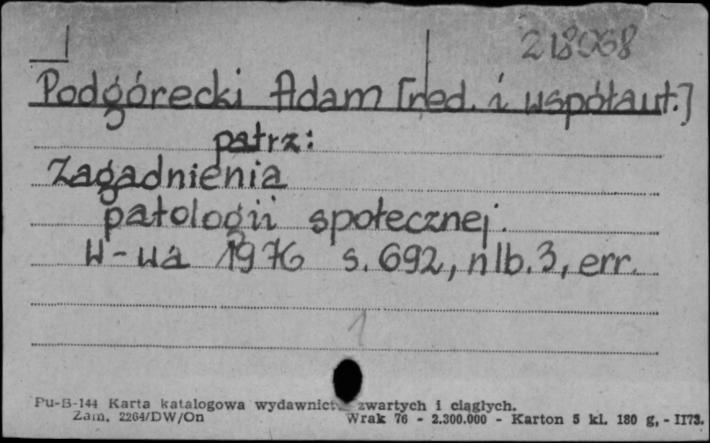 218068
Podgórecki Adam [red. i współaut.]
patrz:
Zagadnienia
patologii społecznej.
W-wa 1976 s. 692, nlb. 3, err.
1
Pu-B-144 Karta katalogowa wydawnictw zwartych i ciągłych.
Zam. 2264/DW/On Wrak 76 - 2.300.000 - Karton 5 kl. 180 g. - II73.